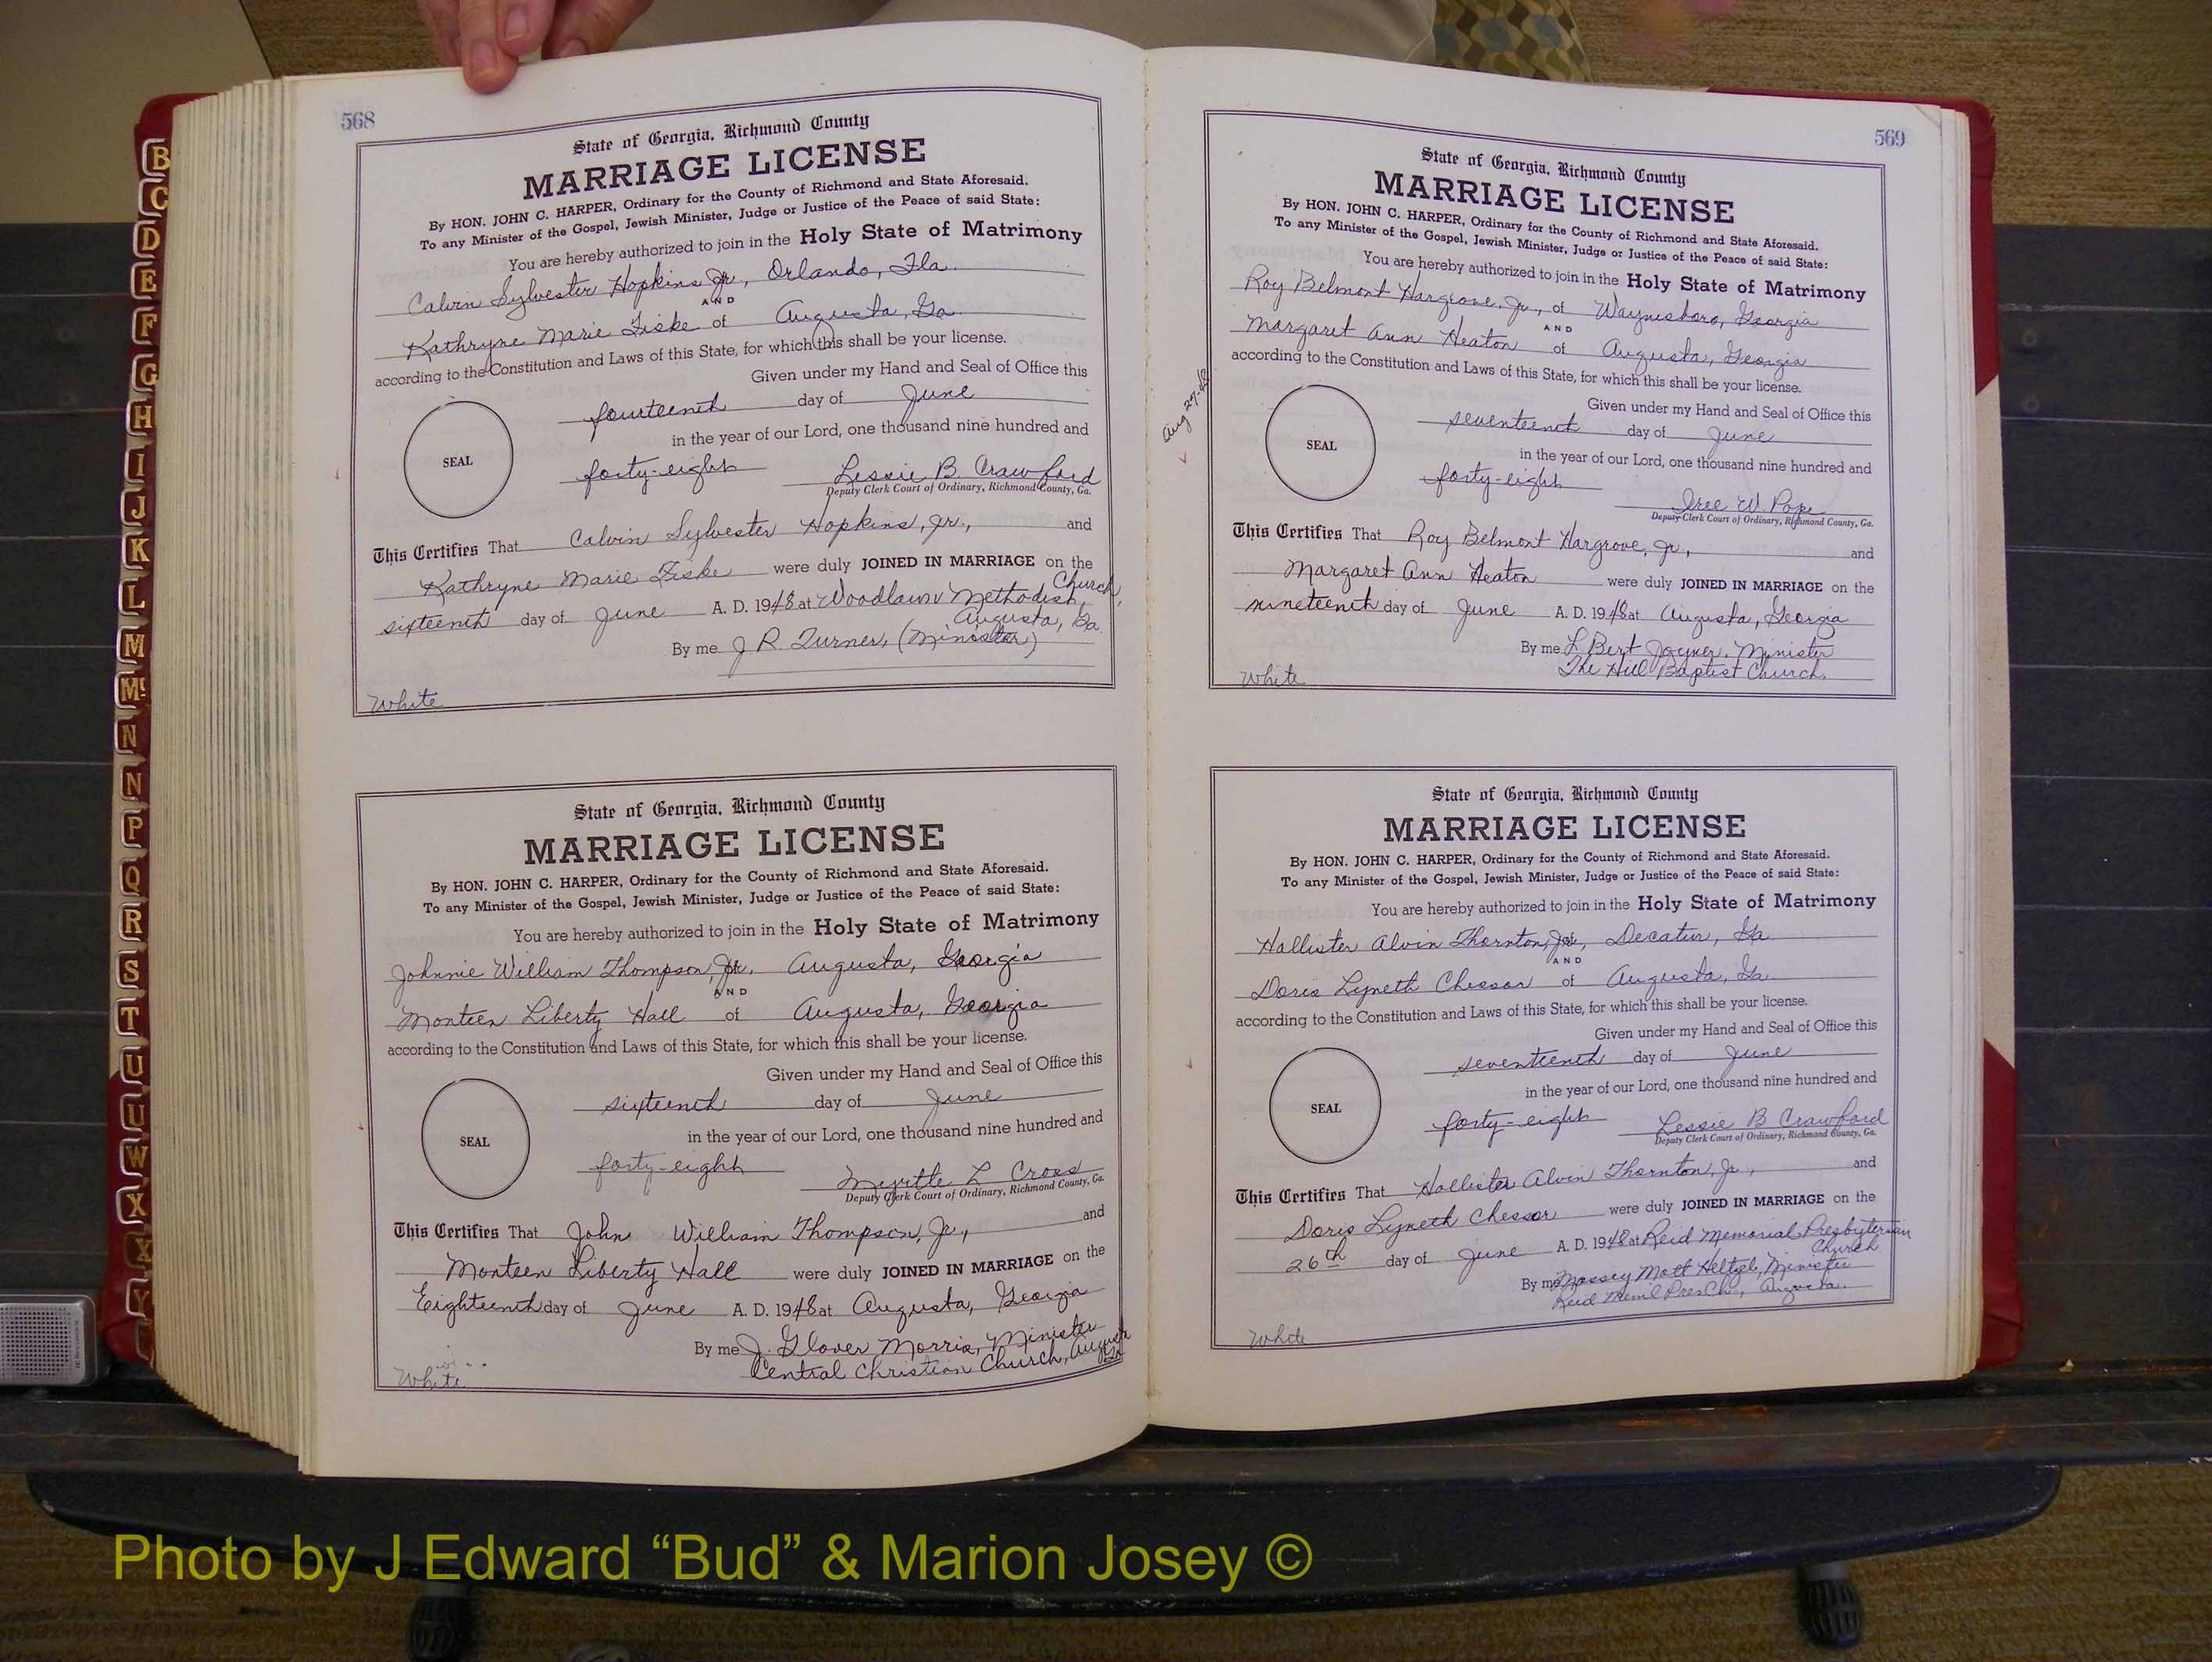 568
State of Georgia, Richmond County
MARRIAGE LICENSE
By HON. JOHN C. HARPER, Ordinary for the County of Richmond and State Aforesaid.
To any Minister of the Gospel, Jewish Minister, Judge or Justice of the Peace of said State:
You are hereby authorized to join in the Holy State of Matrimony
Calvin Sylvester Hopkins Jr., Orlando, Fla.
AND
Kathryne Marie Fiske of Augusta, Ga.
according to the Constitution and Laws of this State, for which this shall be your license.
Given under my Hand and Seal of Office this
fourteenth day of June
in the year of our Lord, one thousand nine hundred and
SEAL
forty-eight Lessie B. Crawford
Deputy Clerk Court of Ordinary, Richmond County, Ga.
This Certifies That Calvin Sylvester Hopkins, Jr., and
Kathryne Marie Fiske were duly JOINED IN MARRIAGE on the
sixteenth day of June A. D. 1948 at Woodlawn Methodist Church,
Augusta, Ga.
By me J. R. Turner, (Minister)
White
State of Georgia, Richmond County
MARRIAGE LICENSE
By HON. JOHN C. HARPER, Ordinary for the County of Richmond and State Aforesaid.
To any Minister of the Gospel, Jewish Minister, Judge or Justice of the Peace of said State:
You are hereby authorized to join in the Holy State of Matrimony
Johnnie William Thompson, Jr. Augusta, Georgia
AND
Monteen Liberty Hall of Augusta, Georgia
according to the Constitution and Laws of this State, for which this shall be your license.
Given under my Hand and Seal of Office this
sixteenth day of June
in the year of our Lord, one thousand nine hundred and
SEAL
forty-eight Myrtle L Cross
Deputy Clerk Court of Ordinary, Richmond County, Ga.
This Certifies That John William Thompson, Jr., and
Monteen Liberty Hall were duly JOINED IN MARRIAGE on the
Eighteenth day of June A. D. 1948 at Augusta, Georgia
By me J. Glover Morris, Minister
Central Christian Church, Augusta Ga
White
569
State of Georgia, Richmond County
MARRIAGE LICENSE
By HON. JOHN C. HARPER, Ordinary for the County of Richmond and State Aforesaid.
To any Minister of the Gospel, Jewish Minister, Judge or Justice of the Peace of said State:
You are hereby authorized to join in the Holy State of Matrimony
Roy Belmont Hargrove, Jr., of Waynesboro, Georgia
AND
Margaret Ann Heaton of Augusta, Georgia
according to the Constitution and Laws of this State, for which this shall be your license.
Aug 27-48
Given under my Hand and Seal of Office this
seventeenth day of June
in the year of our Lord, one thousand nine hundred and
SEAL
forty-eight W. Pope
Deputy Clerk Court of Ordinary, Richmond County, Ga.
This Certifies That Roy Belmont Hargrove, Jr., and
Margaret Ann Heaton were duly JOINED IN MARRIAGE on the
nineteenth day of June A. D. 1948 at Augusta, Georgia
By me L. Bert Joyner, Minister
The Hill Baptist Church.
White
State of Georgia, Richmond County
MARRIAGE LICENSE
By HON. JOHN C. HARPER, Ordinary for the County of Richmond and State Aforesaid.
To any Minister of the Gospel, Jewish Minister, Judge or Justice of the Peace of said State:
You are hereby authorized to join in the Holy State of Matrimony
Hallister Alvin Thornton, Jr., Decatur, Ga
AND
Doris Lyneth Chessor of Augusta, Ga.
according to the Constitution and Laws of this State, for which this shall be your license.
Given under my Hand and Seal of Office this
seventeenth day of June
in the year of our Lord, one thousand nine hundred and
SEAL
forty-eight Lessie B Crawford
Deputy Clerk Court of Ordinary, Richmond County, Ga.
This Certifies That Hallister Alvin Thornton, Jr., and
Doris Lyneth Chessor were duly JOINED IN MARRIAGE on the
26th day of June A. D. 1948 at Reid Memorial Presbyterian
Church
By me Massey Mott Heltzel, Minister
Reid Mem'l Pres Ch., Augusta.
White
B
C
D
E
F
G
H
I
J
K
L
M
Mc
N
N
P
Q
R
S
T
U
U
W
X
X
Y
Photo by J Edward “Bud” & Marion Josey ©